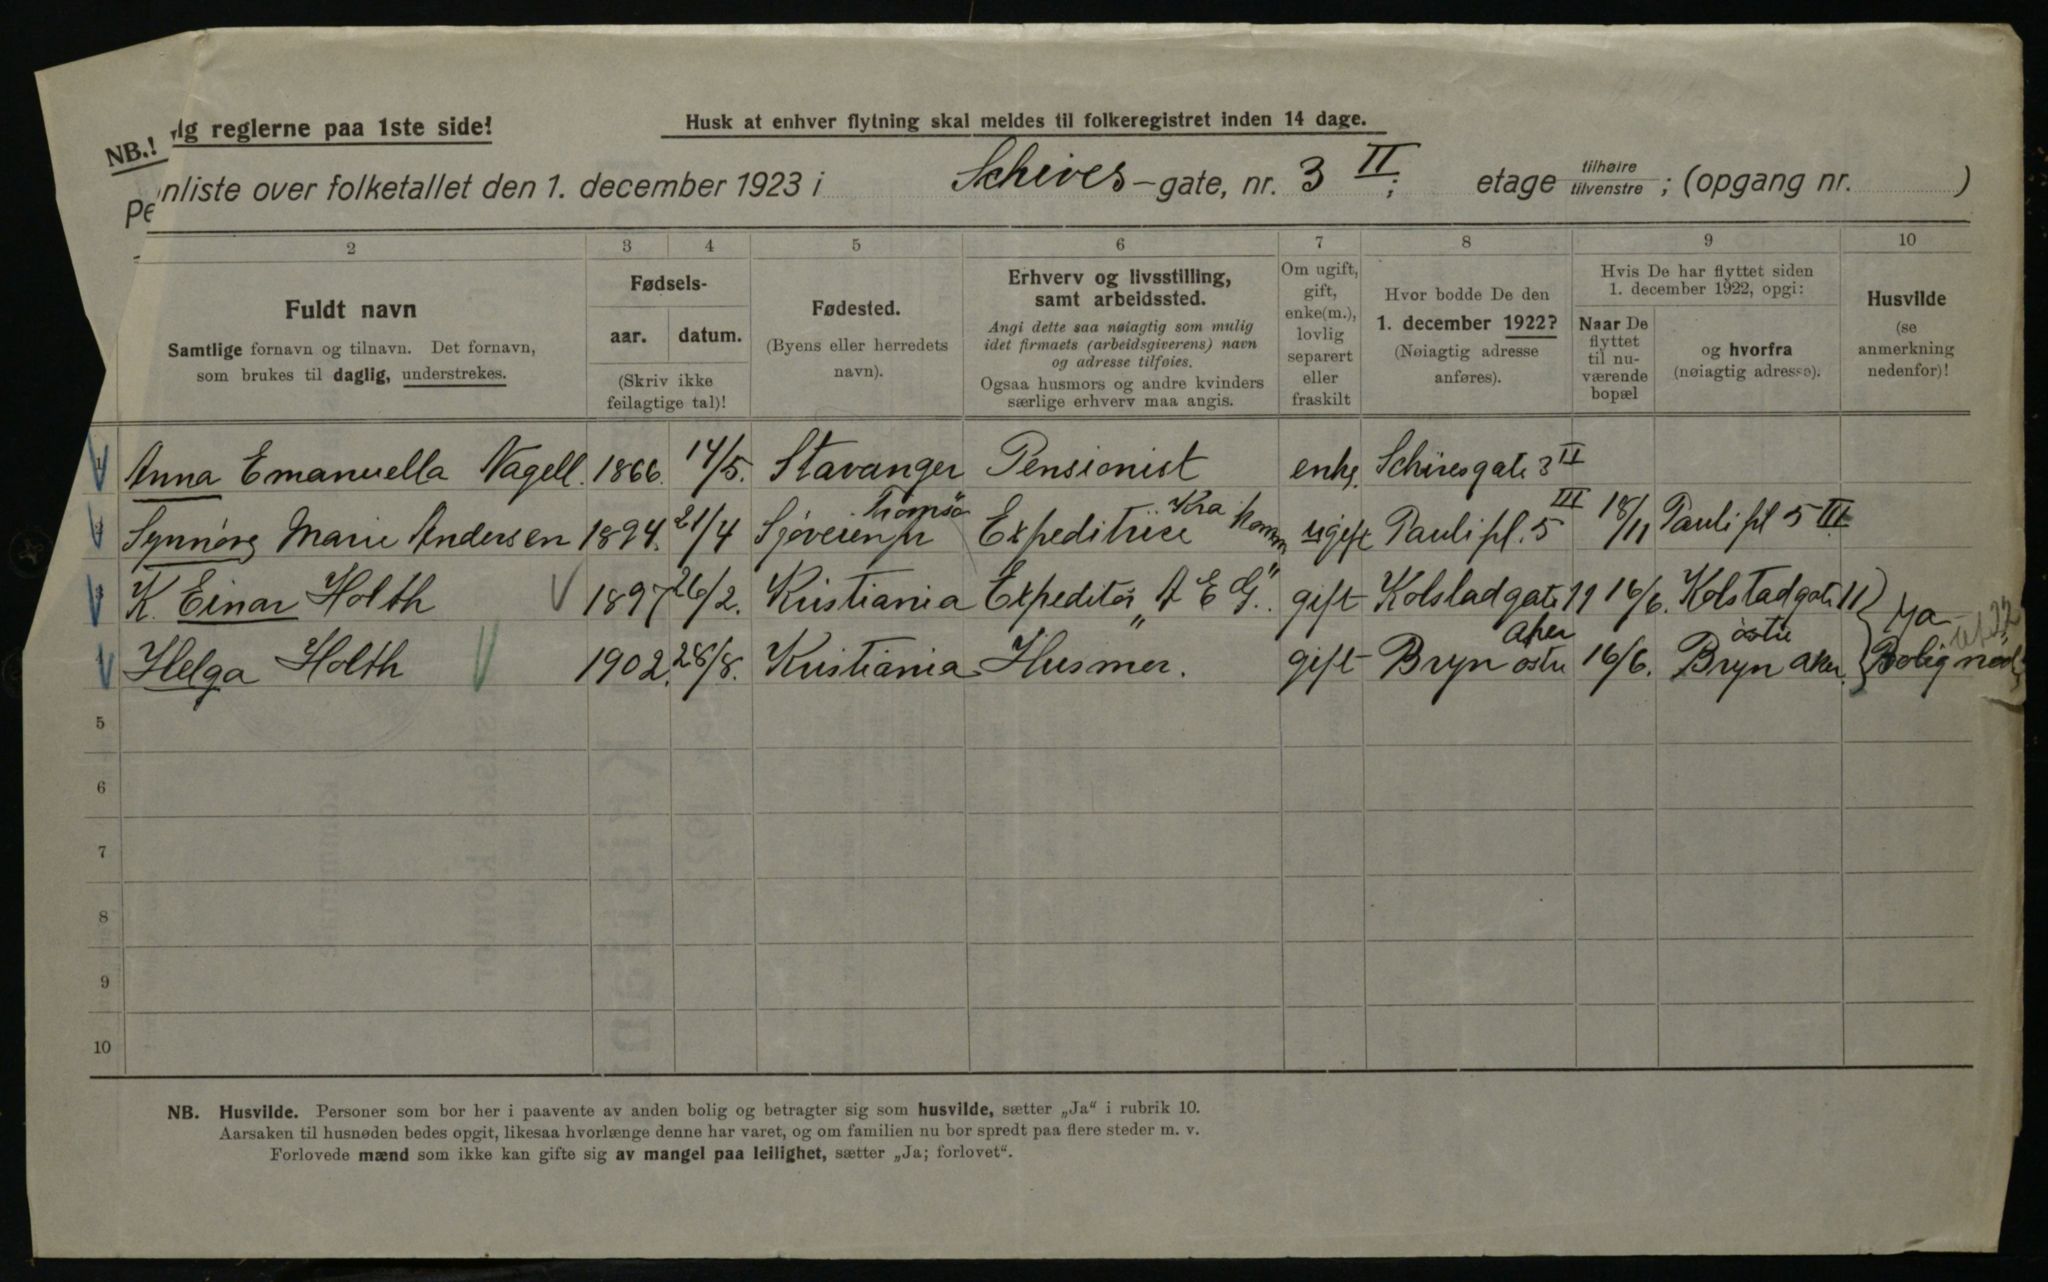 NB.!
lg reglerne paa 1ste side!
Husk at enhver flytning skal meldes til folkeregistret inden 14 dage.
Pe nliste over folketallet den 1. december 1923 i Schives-gate, nr. 3 II; etage tilhøire tilvenstre; (opgang nr. )
2 3 4 5 6 7 8 9 10
Fuldt navn
Samtlige fornavn og tilnavn. Det fornavn,
som brukes til daglig, understrekes.
Fødsels-
aar. datum.
(Skriv ikke
feilagtige tal)!
Fødested.
(Byens eller herredets
navn).
Erhverv og livsstilling,
samt arbeidssted.
Angi dette saa nøiagtig som mulig
idet firmaets (arbeidsgiverens) navn
og adresse tilføies.
Ogsaa husmors og andre kvinders
særlige erhverv maa angis.
Om ugift,
gift,
enke(m.),
lovlig
separert
eller
fraskilt
Hvor bodde De den
1. december 1922?
(Nøiagtig adresse
anføres).
Hvis De har flyttet siden
1. december 1922, opgi:
Naar De
flyttet
til nu-
værende
bopæl
og hvorfra
(nøiagtig adresse).
Husvilde
(se
anmerkning
nedenfor)!
1 Anna Emanuella Nagell. 1866. 14/5. Stavanger Pensionist enke. Schivesgate 3 II
2 Synnøve Marie Andersen 1894. 21/4 Tromsø Expeditrise Kra Komm ugift Pauli pl. 5 III 18/11 Pauli pl 5 III
3 K. Einar Holth 1897 26/2. Kristiania Expeditør "A E G". gift Kolstadgate 11 16/6. Kolstadgate 11 Ja
4 Helga Holth 1902. 28/8. Kristiania Husmor. gift Bryn østre Aker 16/6. Bryn østre Aker. Bolignød
5
6
7
8
9
10
NB. Husvilde. Personer som bor her i paavente av anden bolig og betragter sig som husvilde, sætter „Ja" i rubrik 10.
Aarsaken til husnøden bedes opgit, likesaa hvorlænge denne har varet, og om familien nu bor spredt paa flere steder m. v.
Forlovede mænd som ikke kan gifte sig av mangel paa leilighet, sætter „Ja; forlovet".